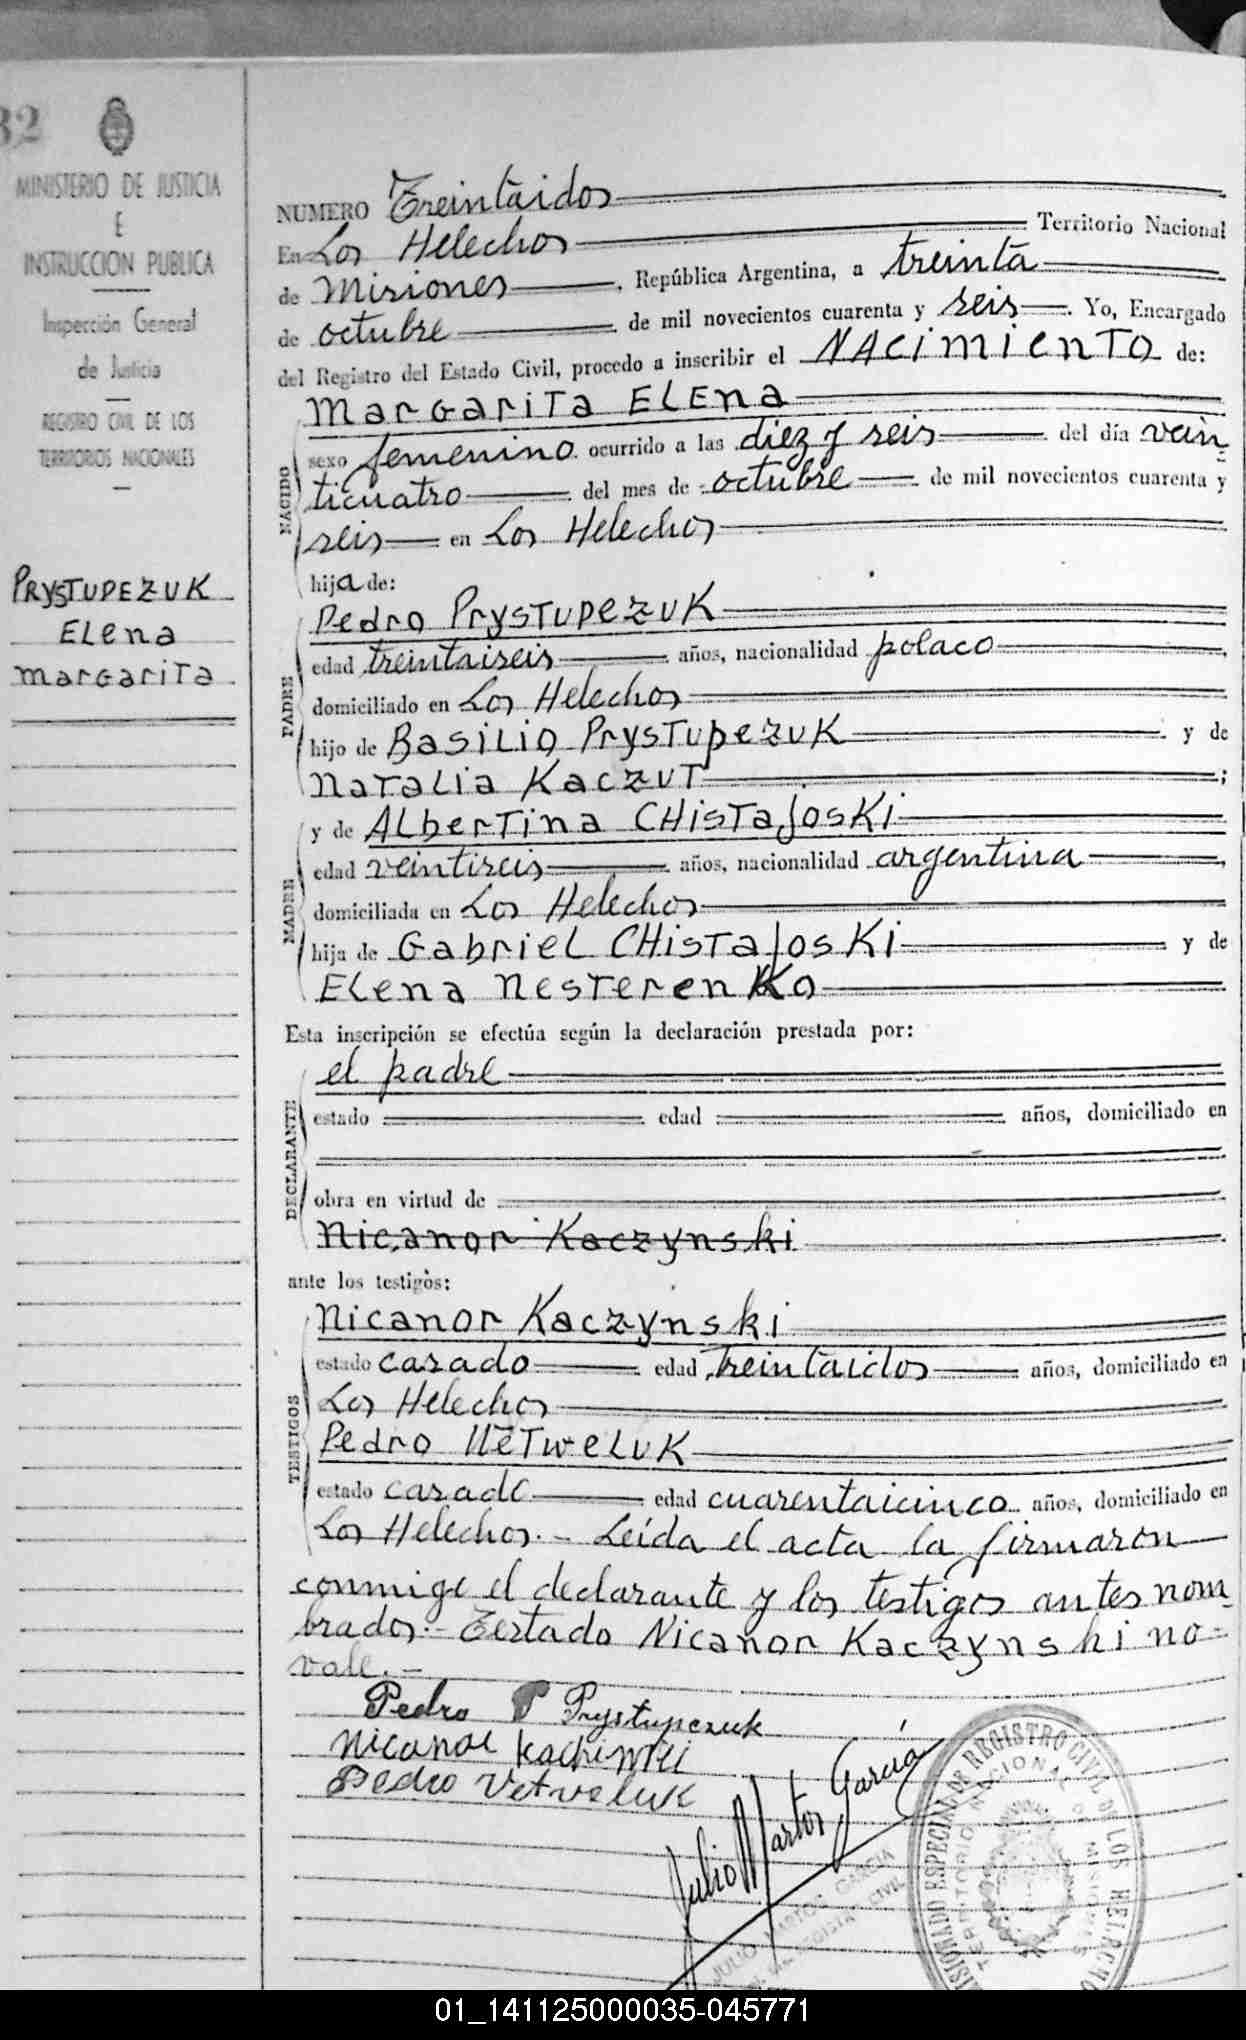 32
MINISTERIO DE JUSTICIA
E
INSTRUCCION PUBLICA
Inspección General
de Justicia
REGISTRO CIVIL DE LOS
TERRITORIOS NACIONALES
PRYSTUPEZUK
ELena
margarita
NUMERO Treintaidos
En Los Helechos Territorio Nacional
de Misiones, República Argentina, a treinta
de octubre de mil novecientos cuarenta y seis. Yo, Encargado
del Registro del Estado Civil, procedo a inscribir el NACimienTO de:
MARGARITA ELENA
NACIDO
sexo femenino ocurrido a las diez y seis del día vein
ticuatro del mes de octubre de mil novecientos cuarenta y
seis en Los Helechos
hija de:
PADRE
Pedro PRYSTUPEZUK
edad treintaiseis años, nacionalidad polaco
domiciliado en Los Helechos
hijo de BASILIO PRYSTUPEZUK y de
NATALIA KACZUT;
MADRE
y de ALBERTINA CHISTAJOSKI
edad veintiseis años, nacionalidad argentina
domiciliada en Los Helechos
hija de GABRIEL CHISTAJOSKI y de
ELENA NESTERENKO
Esta inscripción se efectúa según la declaración prestada por:
DECLARANTE
el padre
estado edad años, domiciliado en
obra en virtud de
Nicanor Kaczynski
ante los testigos:
TESTIGOS
Nicanor Kaczynski
estado casado edad treintaidos años, domiciliado en
Los Helechos
Pedro
estado casado edad cuarentaicinco años, domiciliado en
Los Helechos.- Leída el acta la firmaron
conmigo el declarante y los testigos antes nom
brados.- Testado Nicanor Kaczynski no-
vale.-
Pedro P Prystupczuk
Nicanor
Pedro Vetveluk
Julio Martos García
JULIO MARTOS GARCIA
REGISTRO CIVIL
COMISIONADO ESPECIAL DE REGISTRO CIVIL DE LOS HELECHOS
TERRITORIO NACIONAL DE MISIONES
01_141125000035-045771